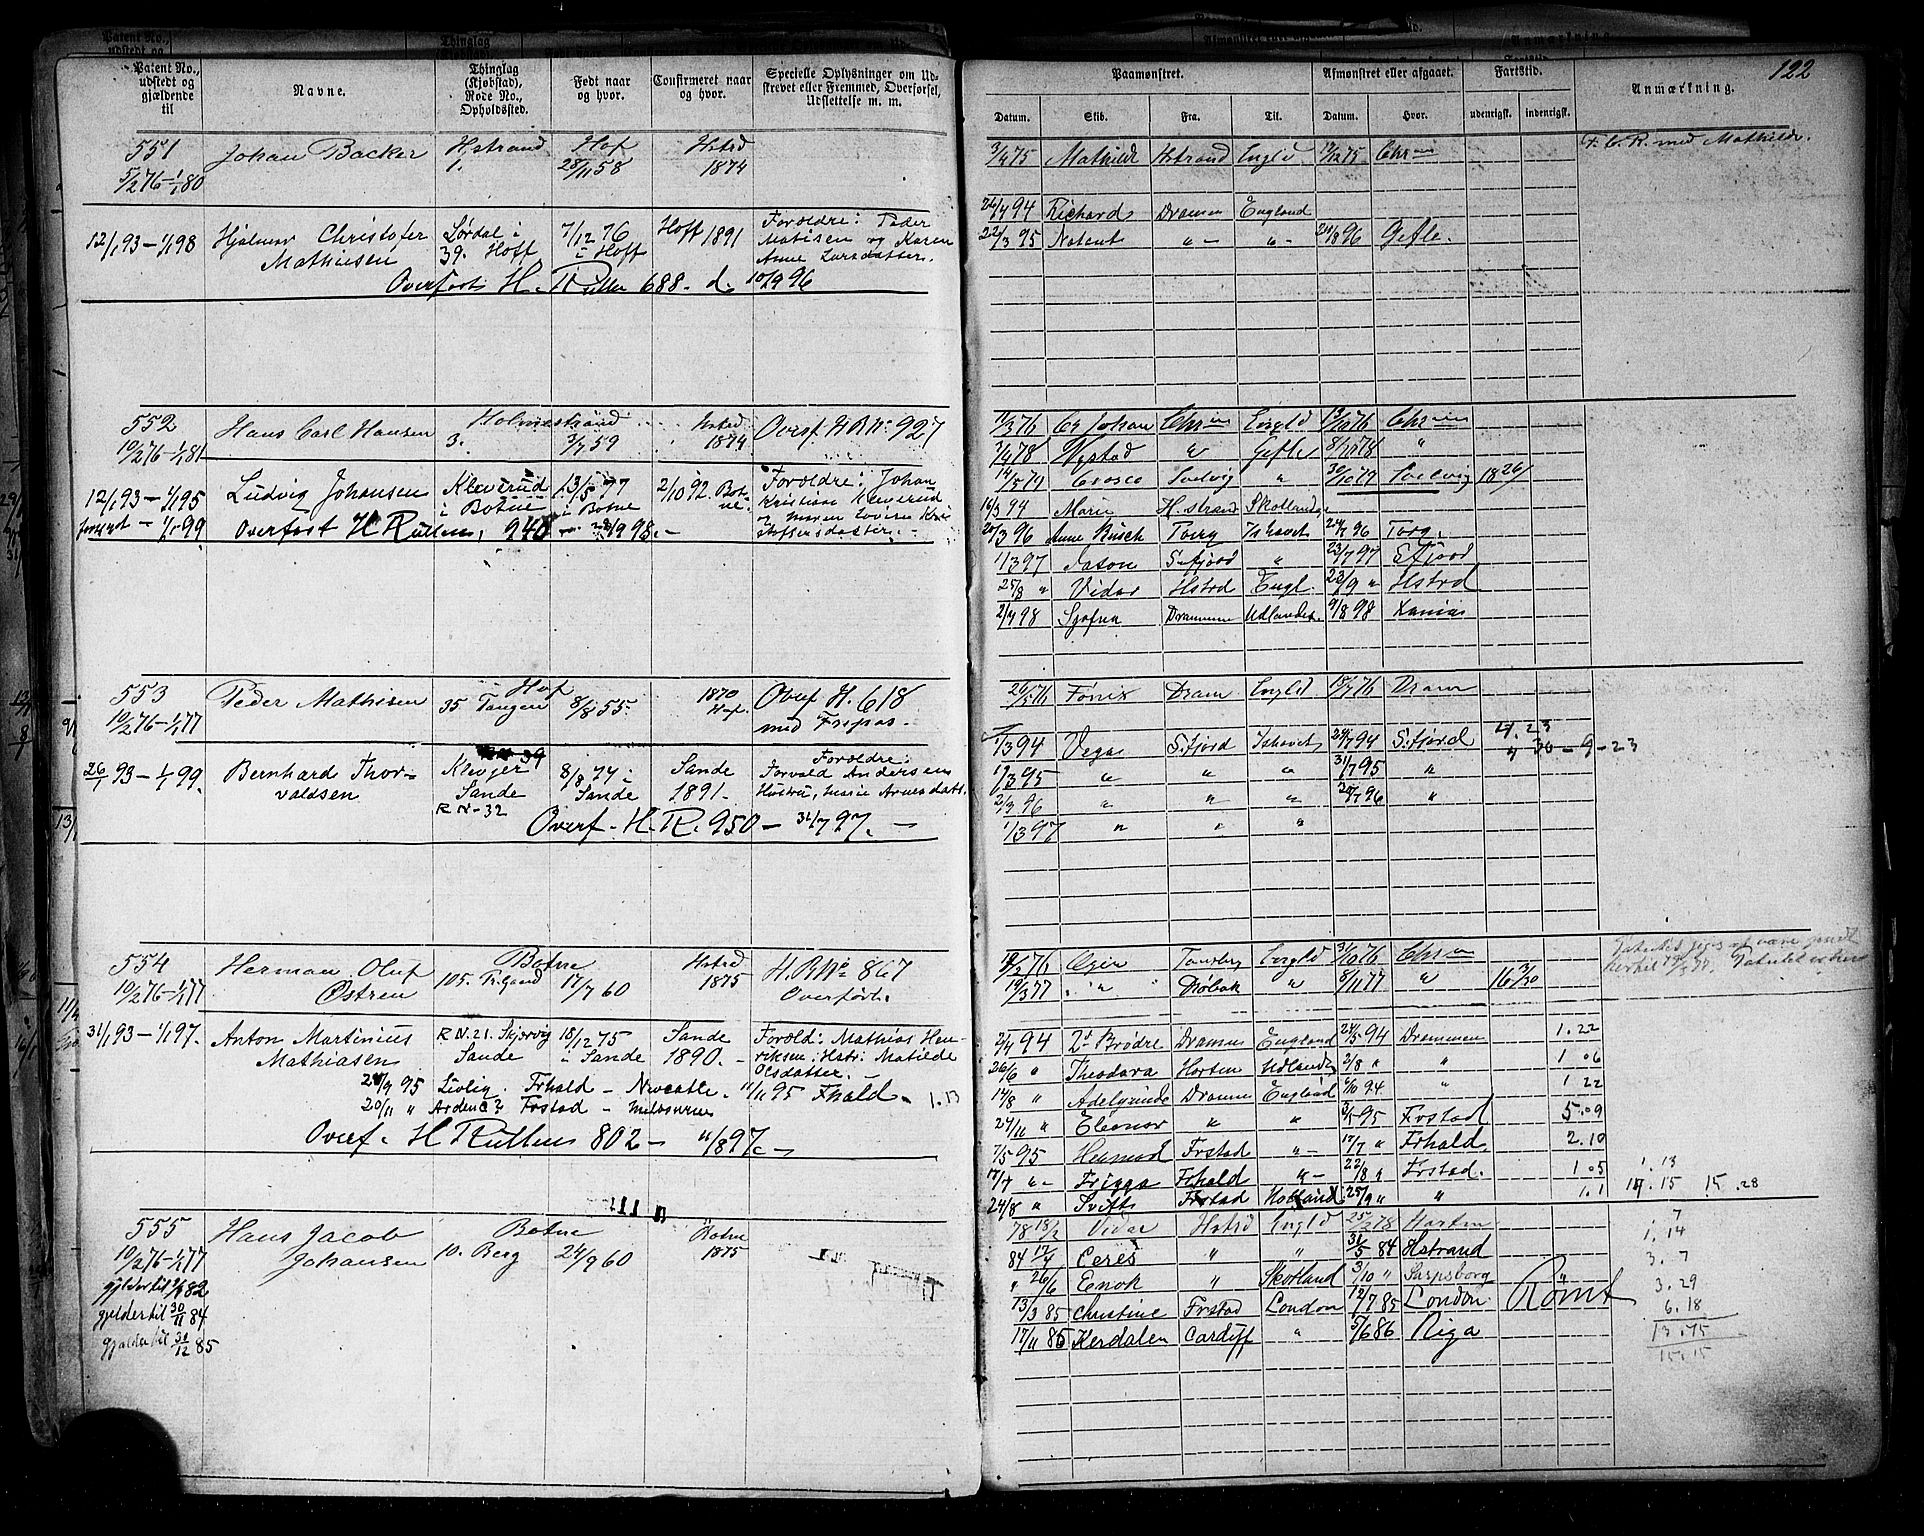 Patent No., udstedt og gjældende til
Navne.
Thinglag (Kjøbstad), Rode No., Opholdssted.
Født naar og hvor.
Confirmeret naar og hvor.
Specielle Oplysninger om Udskrevet eller Fremmed, Overførsel, Udslettelse m. m.
551
5/2 76–1/1 80
Johan Backer
Hstrand
1.
Hof
28/11 58
Hstrd
1874
12/1 93 – 1/1 98
Hjalmar Christofer
Mathiesen
Lørdal i
39. Hoff
7/12 76
i Hoff
Hoff 1891
Forældre: Peder
Matisen og Karen
Anne Larsdatter.
Overført H. Rullen 688. d. 10/9 96
552
10/2 76–1/1 81
Hans Carl Hansen
Holmestrand
3.
3/7 59
Hstrd
1874
Overf. H R No 927
12/1 93 – 1/1 95
– 1/1 99
Ludvig Johansen
Kleverud
i Botne
13/5 77
i Botne
2/10 92. Bot-
ne.
Forældre: Johan
Kristian Kleverud
Overført H Rullen, 940 – 23/9 98. –
553
10/2 76–1/1 77
Peder Mathisen
Hof
35 Tangen
8/8 55.
1870
Hof.
Overf H. 618
med Fripas.
26/1 93 – 1/1 99.
Bernhard Thor-
valdsen
39
Klevjer
Sande
R N- 32
8/8 74 i
Sande
Sande
1891.
Forældre:
Torvald Andersen
Overf. H. R. 950 – 31/7 97. –
554
10/2 76–1/1 77
Herman Oluf
Østren
Botne
105.
17/7 60
Hstrd
1875
H. R No 867
Overført.
31/1 93 – 1/1 97.
Anton Martinius
Mathiasen
R N. 21. Skjervig
Sande
18/12 75
i Sande
Sande
1890. –
Foræld: Mathias Hen-
riksen, Hstr: Matilde
Olsdatter. –
Frhald – Newcatle. 11/11 95 Fhald. 1.13
20/11 " Frstad –
Overf. H Rullens 802 – 11/8 97. –
555
10/2 76–1/1 77
gjelder til 84
85
Hans Jacob
Johansen
Botne
10. Berg
24/9 60
Botne
1875
122
Paamønstret.
Afmønstret eller afgaaet.
Fartstid.
Anmærkning.
Datum.
Skib.
Fra.
Til.
Datum.
Hvor.
udenrigsk.
indenrigsk.
3/4 75 Mathilde Hstrand Engld 17/12 75 Chr
F. C. R. med Mathilde.
26/4 94 Richard Dramm England
22/3 95 Notent " – " – 24/8 96 Gefle.
11/3 76 C Johan Chr Engld 13/10 76 Chr
3/4 78 Vestad " Gefle 8/10 78 "
14/5 79 Svelvig " 30/10 79 Svelvig 18 26/
16/3 94 Marie H. strand Skotland
20/3 96 Anne Ishavet 96
1/3 97 Jason S.fjord " 23/7 97 Sfjord
25/8 " Vidar Hstrd Engl. 22/9 " Hstrd
2/4 98 Sjofna Drammen Udlandet. 9/8 98 Xania
20/5 76 Fønix Dram Engld 18/7 76 Dram
1/3 94 Vega S.fjord Ishavet 24/7 94 S.fjord 4.23
" 30 – 9 – 23
1/3 95 " " " 31/7 95 "
2/3 96 " " " 20/7 96 "
1/3 97 " " "
Tønsberg Engld 31/10 76 Chr
19/3 77 " Drøbak " 8/11 77 " 16 3/30
2/4 94 2de Brødre Dramm England 24/5 94 Drammen 1.22
26/6 " Theodora Horten Udlandet 2/8 " " 1.06
14/8 " Adelgunde Dramm England 94 " 1.22
24/11 " Eleonor " " 95 Frstad 5.09
7/5 95 Hermod Frstad " – 17/7 " Frhald. 2.10
17/7 " – Frigga Frhald " – 22/8 " Frstad. 1.05 1.13
24/8 " Svift Frstad Holland 25/9 " " 1.1 15 15.28
78 13/2 Vidar Hstrd Engld 25/2 78 Horten 7
84 17/4 Ceres " " 31/5 84 Hstrand 1.14
" 26/6 Enok " Skotland 3/10 " Sarpsborg 3.7
13/3 85 Christine Frstad London 12/7 85 London. Rømt 3.29
17/11 85 Kerdalen Cardiff " 5/6 86 Riga 6.18
13.75
15.15